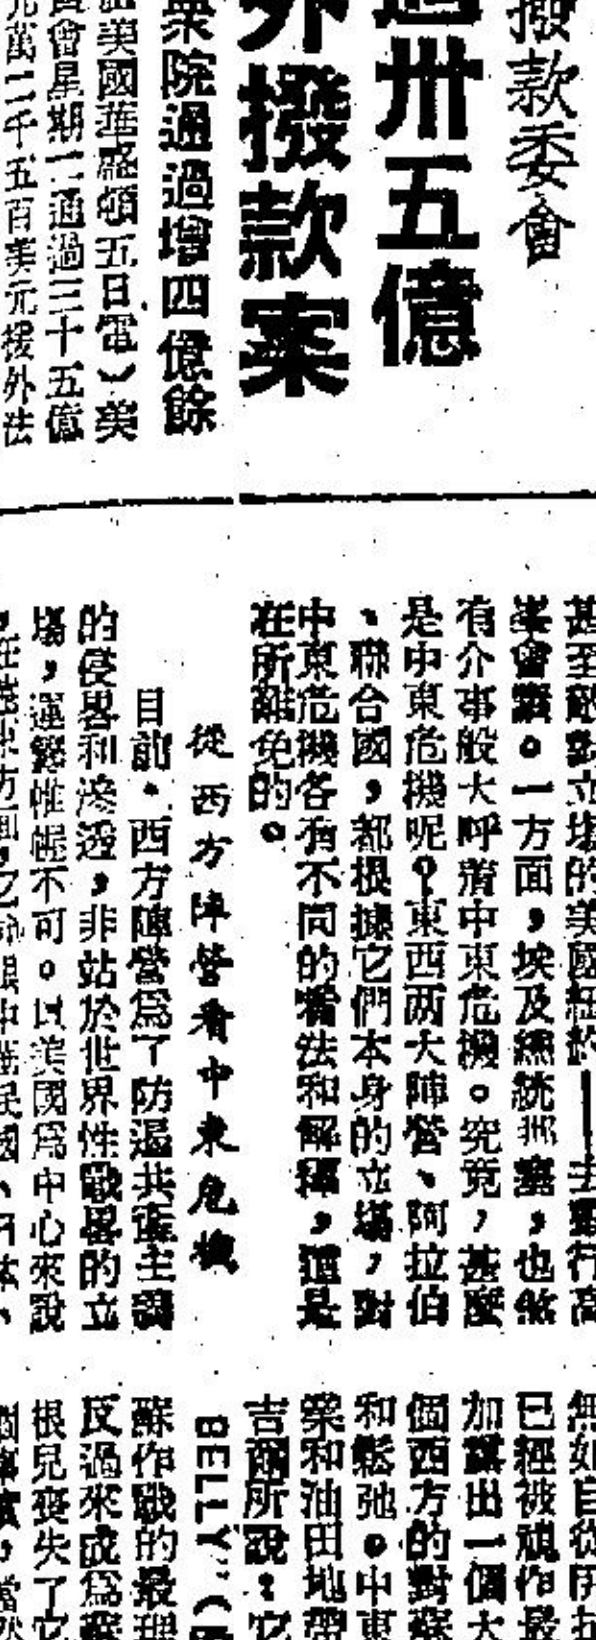 撥款委會
過卅五億
外撥款案
衆院通過增四億餘
美國華盛頓五日電）美
會星期二通過三十五億
萬二千五百美元援外法
甚至敵對立場的美國紐約——去舉行高
峯會議。一方面，埃及總統那塞，也煞
有介事般大呼籲中東危機。究竟，甚麼
是中東危機呢？東西两大陣營、阿拉伯
、聯合國，都根據它們本身的立塲，對
中東危機各有不同的看法和解釋，這是
在所難免的。
從西方陣營看中東危機
目前，西方陣營爲了防遏共產主義
的侵畧和滲透，非站於世界性戰畧的立
塲，運籌帷幄不可。以美國爲中心來說
中華民國、日本、
無如自從伊拉
已經被視作最
加讓出一個大
個西方的對蘇
和鬆弛。中東
業和油田地帶
吉爾所說：它
BELLY"（
蘇作戰的最理
反過來成爲蘇
根兒喪失了它